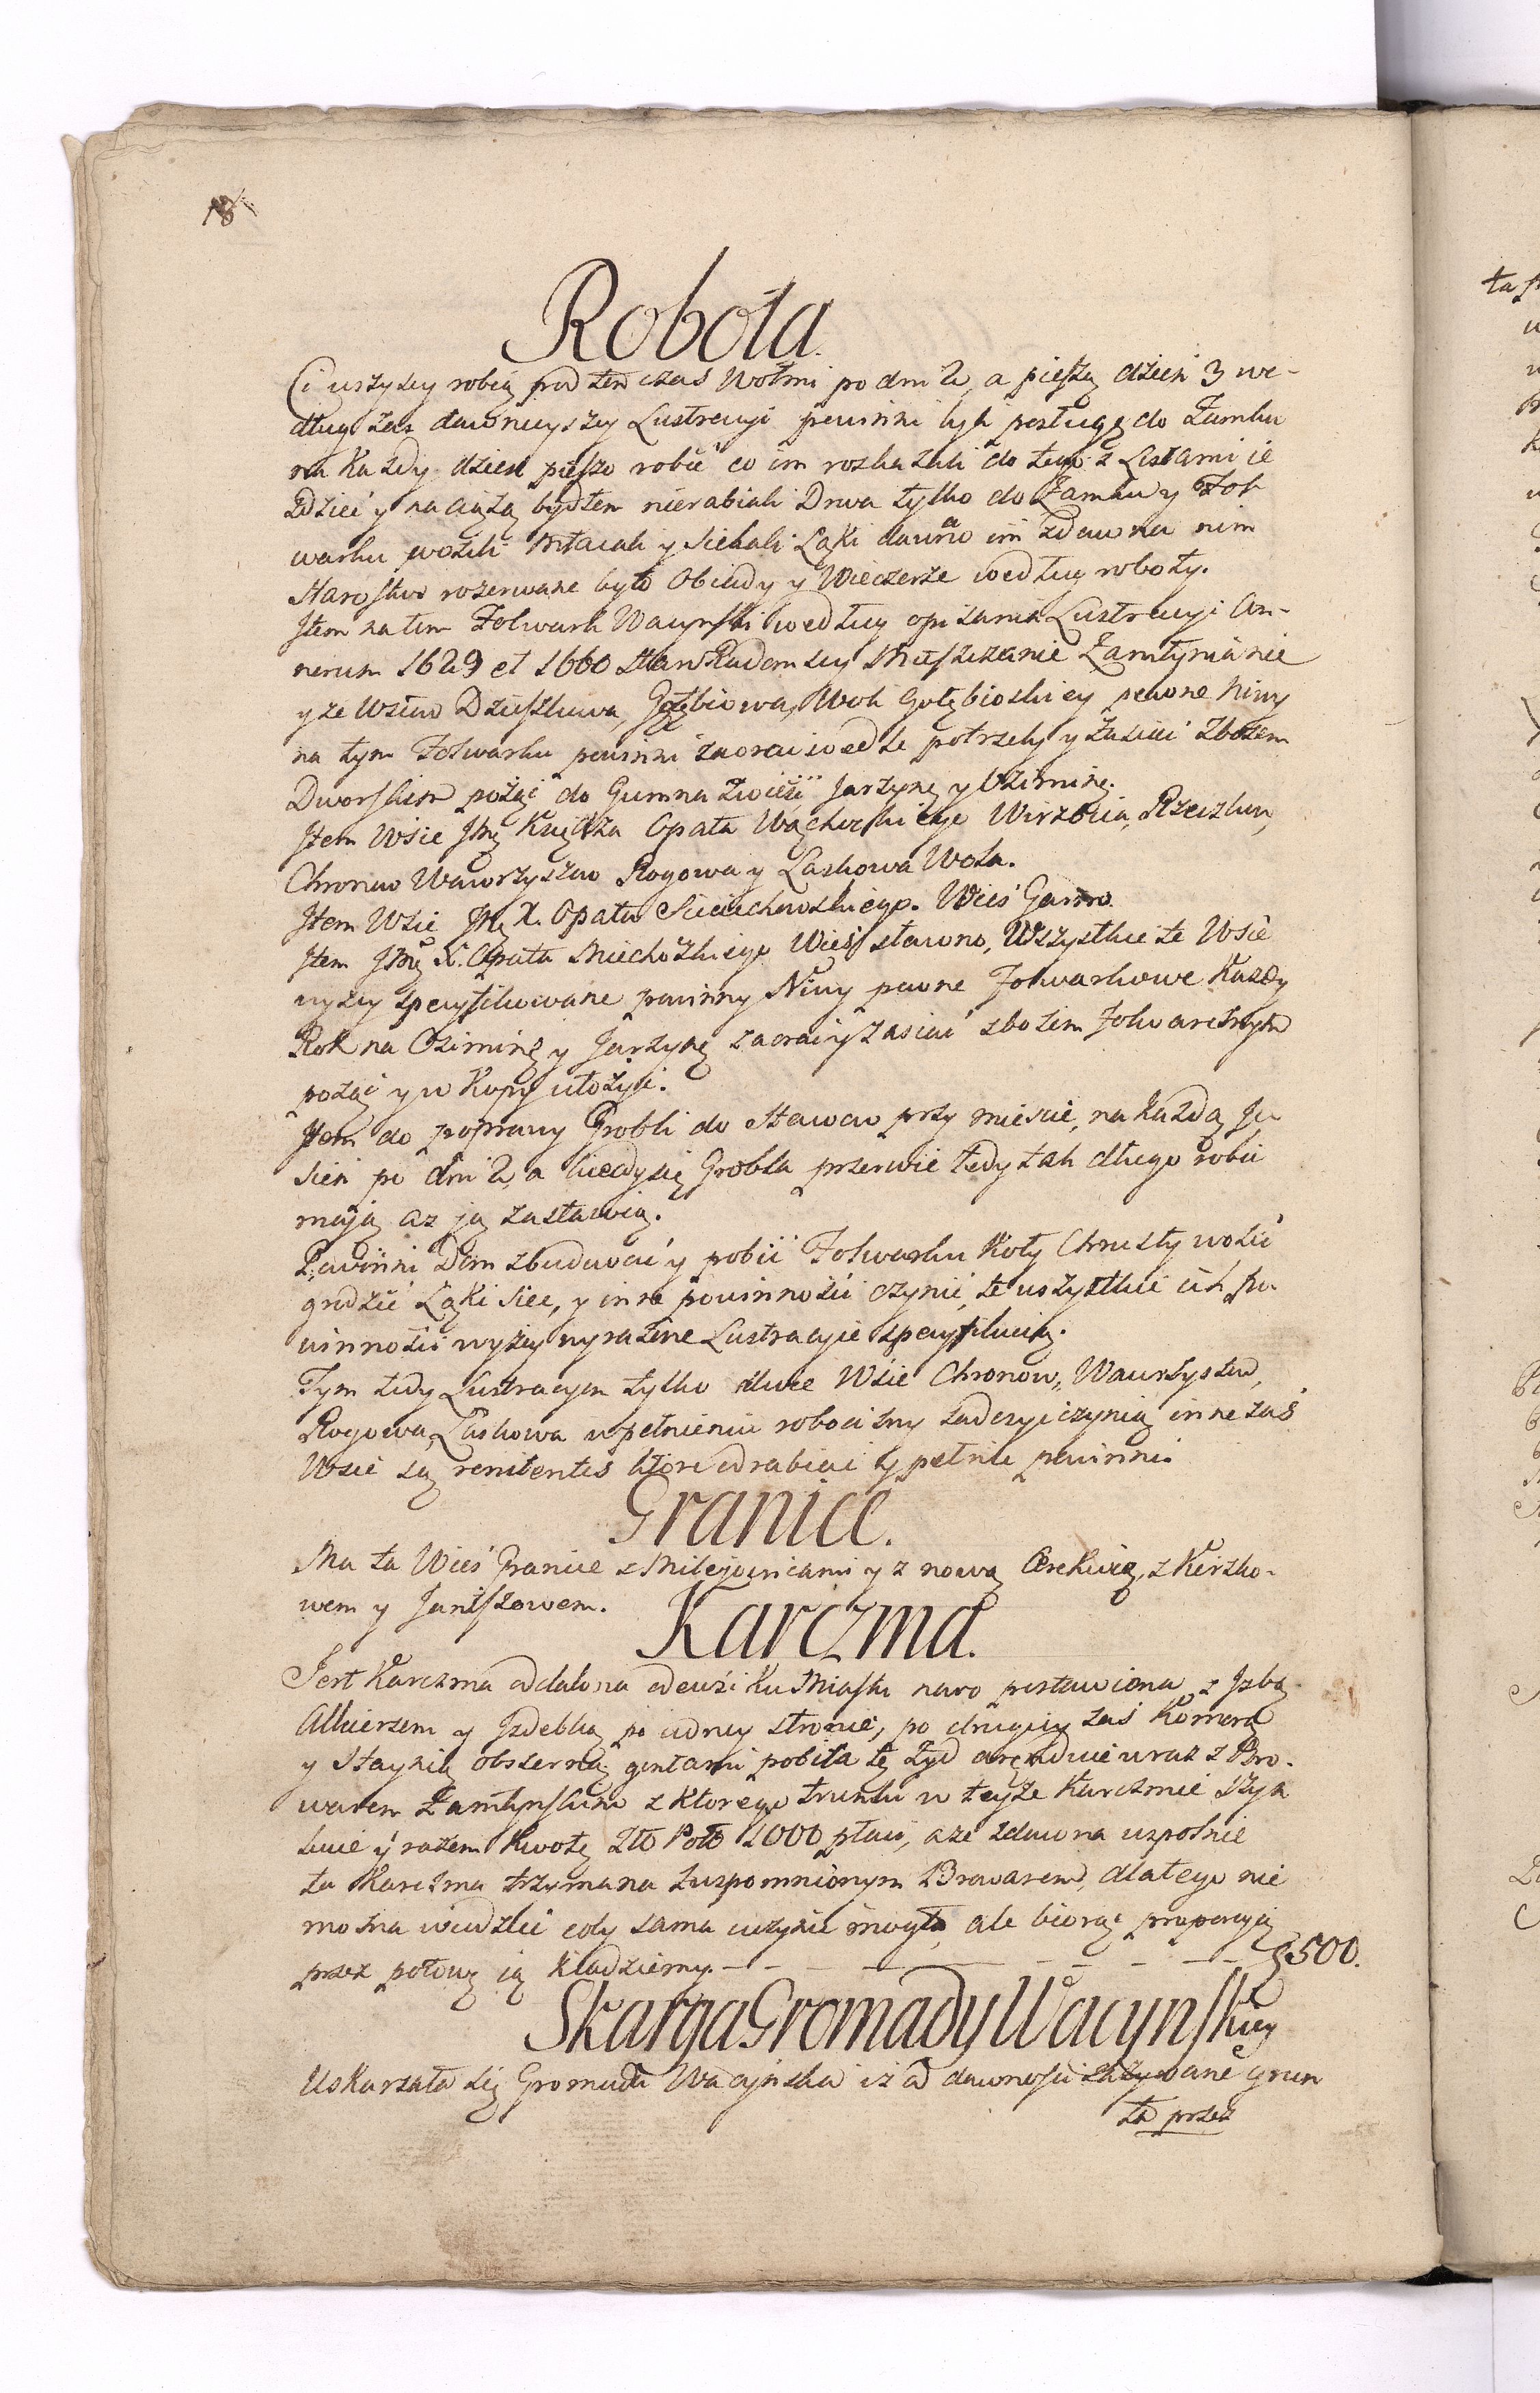 18
Robota.
Ci wszyscy robią pod ten czas Wołmi po dni 2, a pieszą dzień 3 we-
dług zas dawnieyszey Lustracyi powinni byli posługę do Zamku
na Każdy dzień pieszo robić co im rozkazali do tego z Listami ie
zdzić y na ciążą bydłem nierabiali Drwa tylko do Zamku y Fol
warku wozili Młacali y Siekali Łąki dawno im zdawna nim
Starostwo rozerwane było Obiady y Wieczerze według roboty.
Item na tem Folwark Wacynski według opisania Lustracyi An-
norum 1629 et 1660 Staro Radomscy Mieszczanie Zamłynianie
y ze Wsiow Dzieszkowa, Gołębiowa, Woli Gołębioskiey pewne Niwy
na tym Folwarku powinni zaorac wedle potrzeby y zasiać Zbożem
Dworskim pożąć do Gumna zwieść Jarzynę y Oziminę.
Item Wsie Jmć Księdza Opata Wąchockiego Wirzbica, Rzeczkow,
Chronow Wawrzyszow Rogowa y Laskowa Wola.
Item Wsie Jmć X. Opata Sieciechowskiego. Wieś Garno.
Item Jmć X. Opata Miechoskiego Wieś Sławno, Wszystkie te Wsie
wyzey specyfikowane powinny Niwy pewne Folwarkowe Każdy
Rok na Oziminę y Jarzynę zaorać y zasiać zbożem Folwarcznym
pożąć y w Kopy ułożyć.
Item do poprawy Grobli do Stawow przy mieście, na każdą Je
sień po dni 2, a kiedy się Grobla przerwie tedy tak długo robić
mają az ją zastawią.
Powinni Dom zbudować y pobić Folwarku Koły Chrusty wozić
grodzić Łąki siec, y inne powinności czynić, te wszystkie ich po
winności wyżey wyrażone Lustracyie specyfikuią.
Tym tedy Lustracyom tylko dwie Wsie Chronow, Wawrzyszow,
Rogowa, Laskowa w pełnieniu robocizny zadosyć czynią inne zaś
Wsie są renitentes ktore odrabiać y pełnić powinni.
Granice.
Ma ta Wieś Granice z Milejowicami y z nową Cerekwią, z Kierzko-
wem y Janiszowem.
Karczma.
Jest Karczma oddalona od wsi ku Miastu nowo postawiona z Izbą
Alkierzem y Izdebką po iedney stronie, po drugiey zaś Komorą
y Staynią obszerną gontami pobita tę Żyd arenduie wraz z Bro-
warem Zamłynskim z ktorego trunki w teyże Karczmie szyn
kuie y razem kwotę Zło Pols 1000 płaci, aże zdawna wspolnie
ta Karczma trzymana z wspomnionym Browarem, dlatego nie
można wiedzieć coby sama uczynić mogła, ale biorąc proporcyą
przez połowę ią kładziemy. - - - - - - - - f 500.
Skarga Gromady Wacynskiey
Uskarzała się Gromada Wacyńska iż od dawności zażywane grun
ta przez